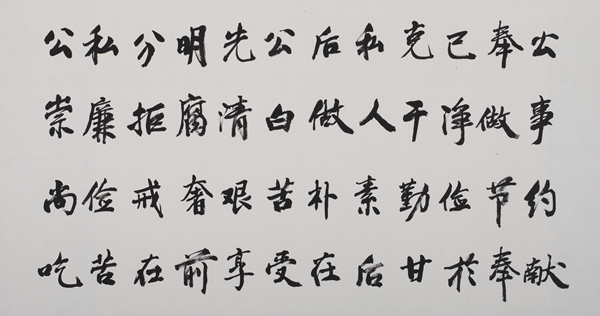 公私分明先公后私克己奉公
崇廉拒腐清白做人干净做事
尚俭戒奢艰苦朴素勤俭节约
吃苦在前享受在后甘于奉献